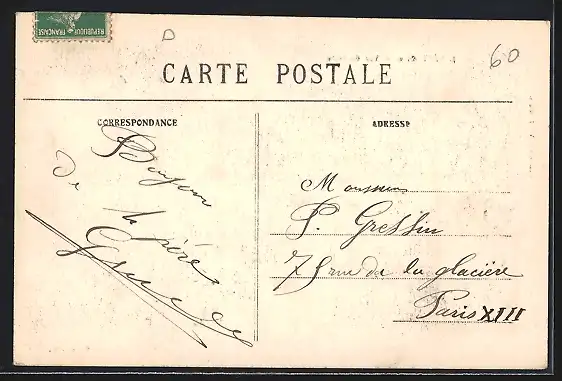 REPUBLIQUE FRANÇAISE
D
60
CARTE POSTALE
CORRESPONDANCE
ADRESSE
Bonjour
De
le père
Monsieur
P.
rue de la glacière
Paris XIII